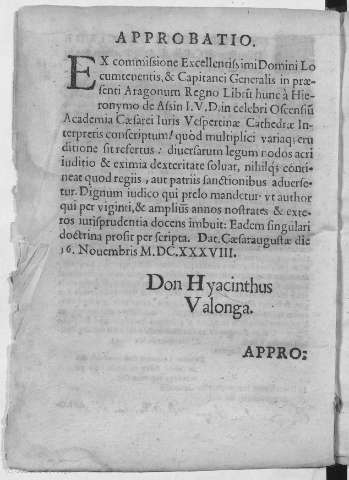 APPROBATIO.
EX commissione Excellentissimi Domini Lo
cumtenentis, & Capitanei Generalis in præ-
senti Aragonum Regno Librũ hunc à Hie-
ronymo de Assin I.V.D. in celebri Oscensiũ
Academia Cæsarei Iuris Vespertinæ Cathedræ In-
terpretis conscriptum! quòd multiplici variaq; eru
ditione sit refertus: diuersarum legum nodos acri
iuditio & eximia dexteritate soluat, nihilq; conti-
neat quod regiis, aut patriis sanctionibus aduerse-
tur. Dignum iudico qui prelo mandetur. vt author
qui per viginti, & ampliùs annos nostrates & exte-
ros iurisprudentia docens imbuit: Eadem singulari
doctrina prosit per scripta. Dat. Cæsaraugustæ die
16. Nouembris M.DC.XXXVIII.
Don Hyacinthus
Valonga.
APPRO: